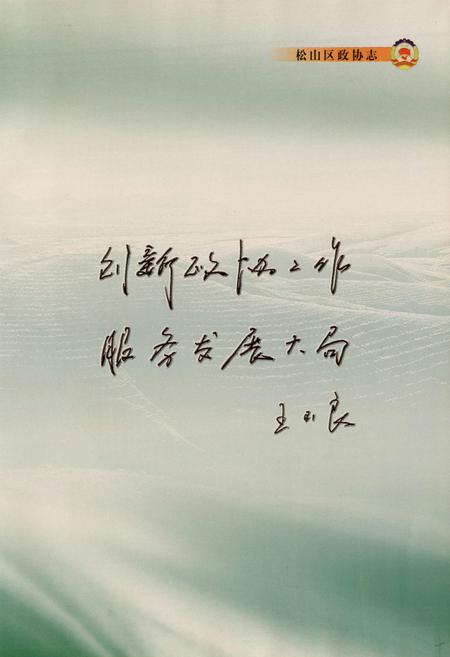 松山区政协志
创新政协工作
服务发展大局